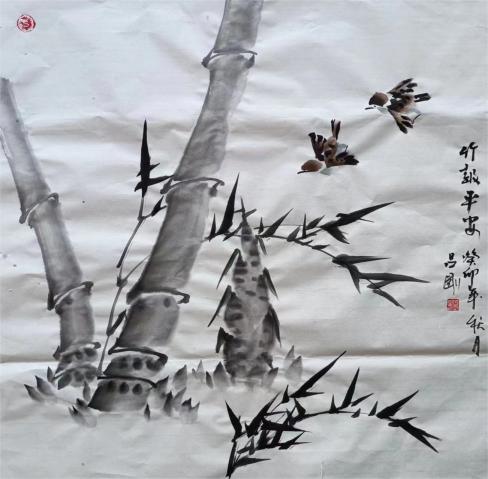 竹报平安
癸卯年秋月
吕刚